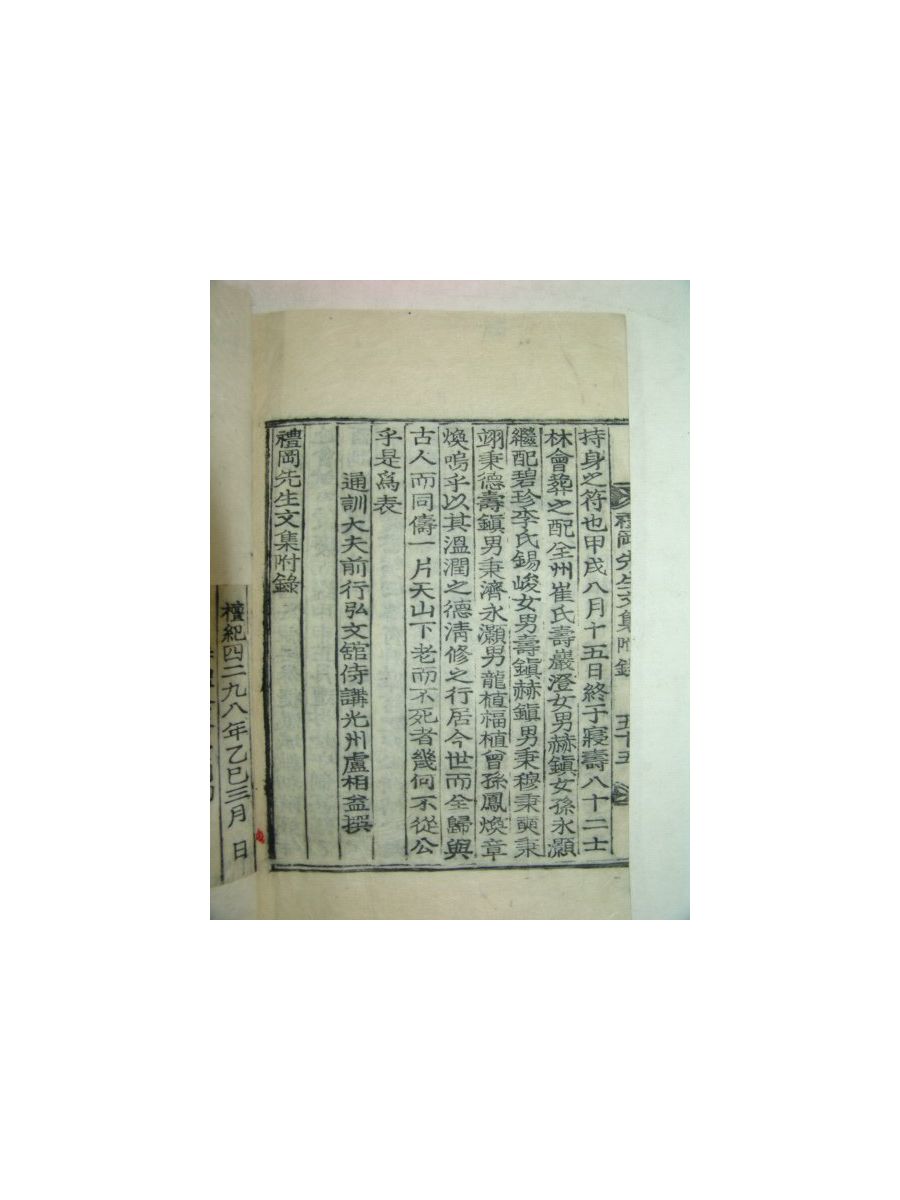 禮岡先生文集附錄 五十五
持身之符也甲戌八月十五日終于寢壽八十二士
林會葬之配全州崔氏壽巖澄女男赫鎭女孫永灝
繼配碧珍李氏錫峻女男壽鎭赫鎭男秉穆秉奭秉
翊秉德壽鎭男秉濟永灝男龍植福植曾孫鳳煥章
煥嗚乎以其溫潤之德淸修之行居今世而全歸與
古人而同儔一片天山下老而不死者幾何不從公
乎是爲表
通訓大夫前行弘文舘侍講光州盧相益撰
禮岡先生文集附錄
檀紀四二九八年乙巳三月 日